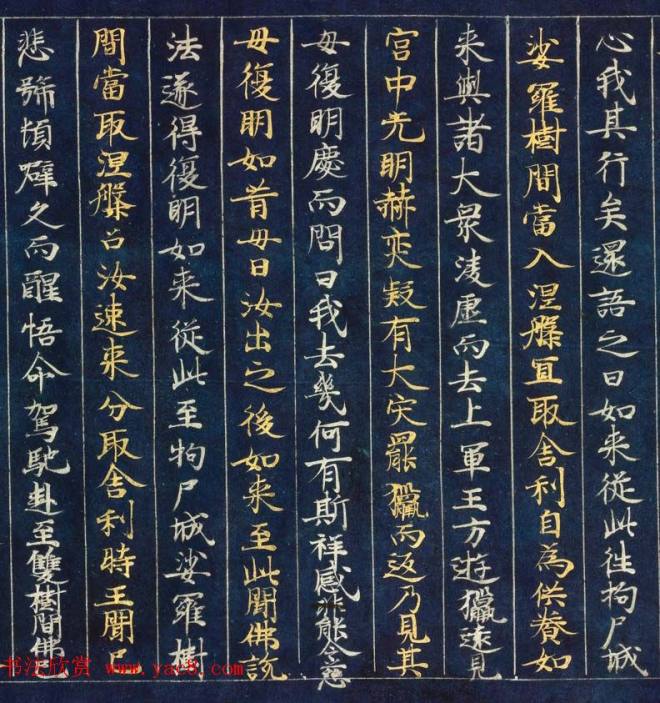 心我其行矣還語之曰如来從此往拘尸城
娑羅樹間當入涅槃宜取舍利自為供養如
来與諸大衆淩虛而去上軍王方遊獵遠見
宮中光明赫奕疑有大灾罷獵而返乃見其
毋復明慶而問曰我去幾何有斯祥感能令慈
毋復明如昔毋曰汝出之後如来至此聞佛說
法遂得復明如来從此至拘尸城娑羅樹
間當取涅槃召汝速来分取舍利時王聞
悲號頓躃久而醒悟命駕馳赴至雙樹間佛
书法欣赏 www.yac8.com